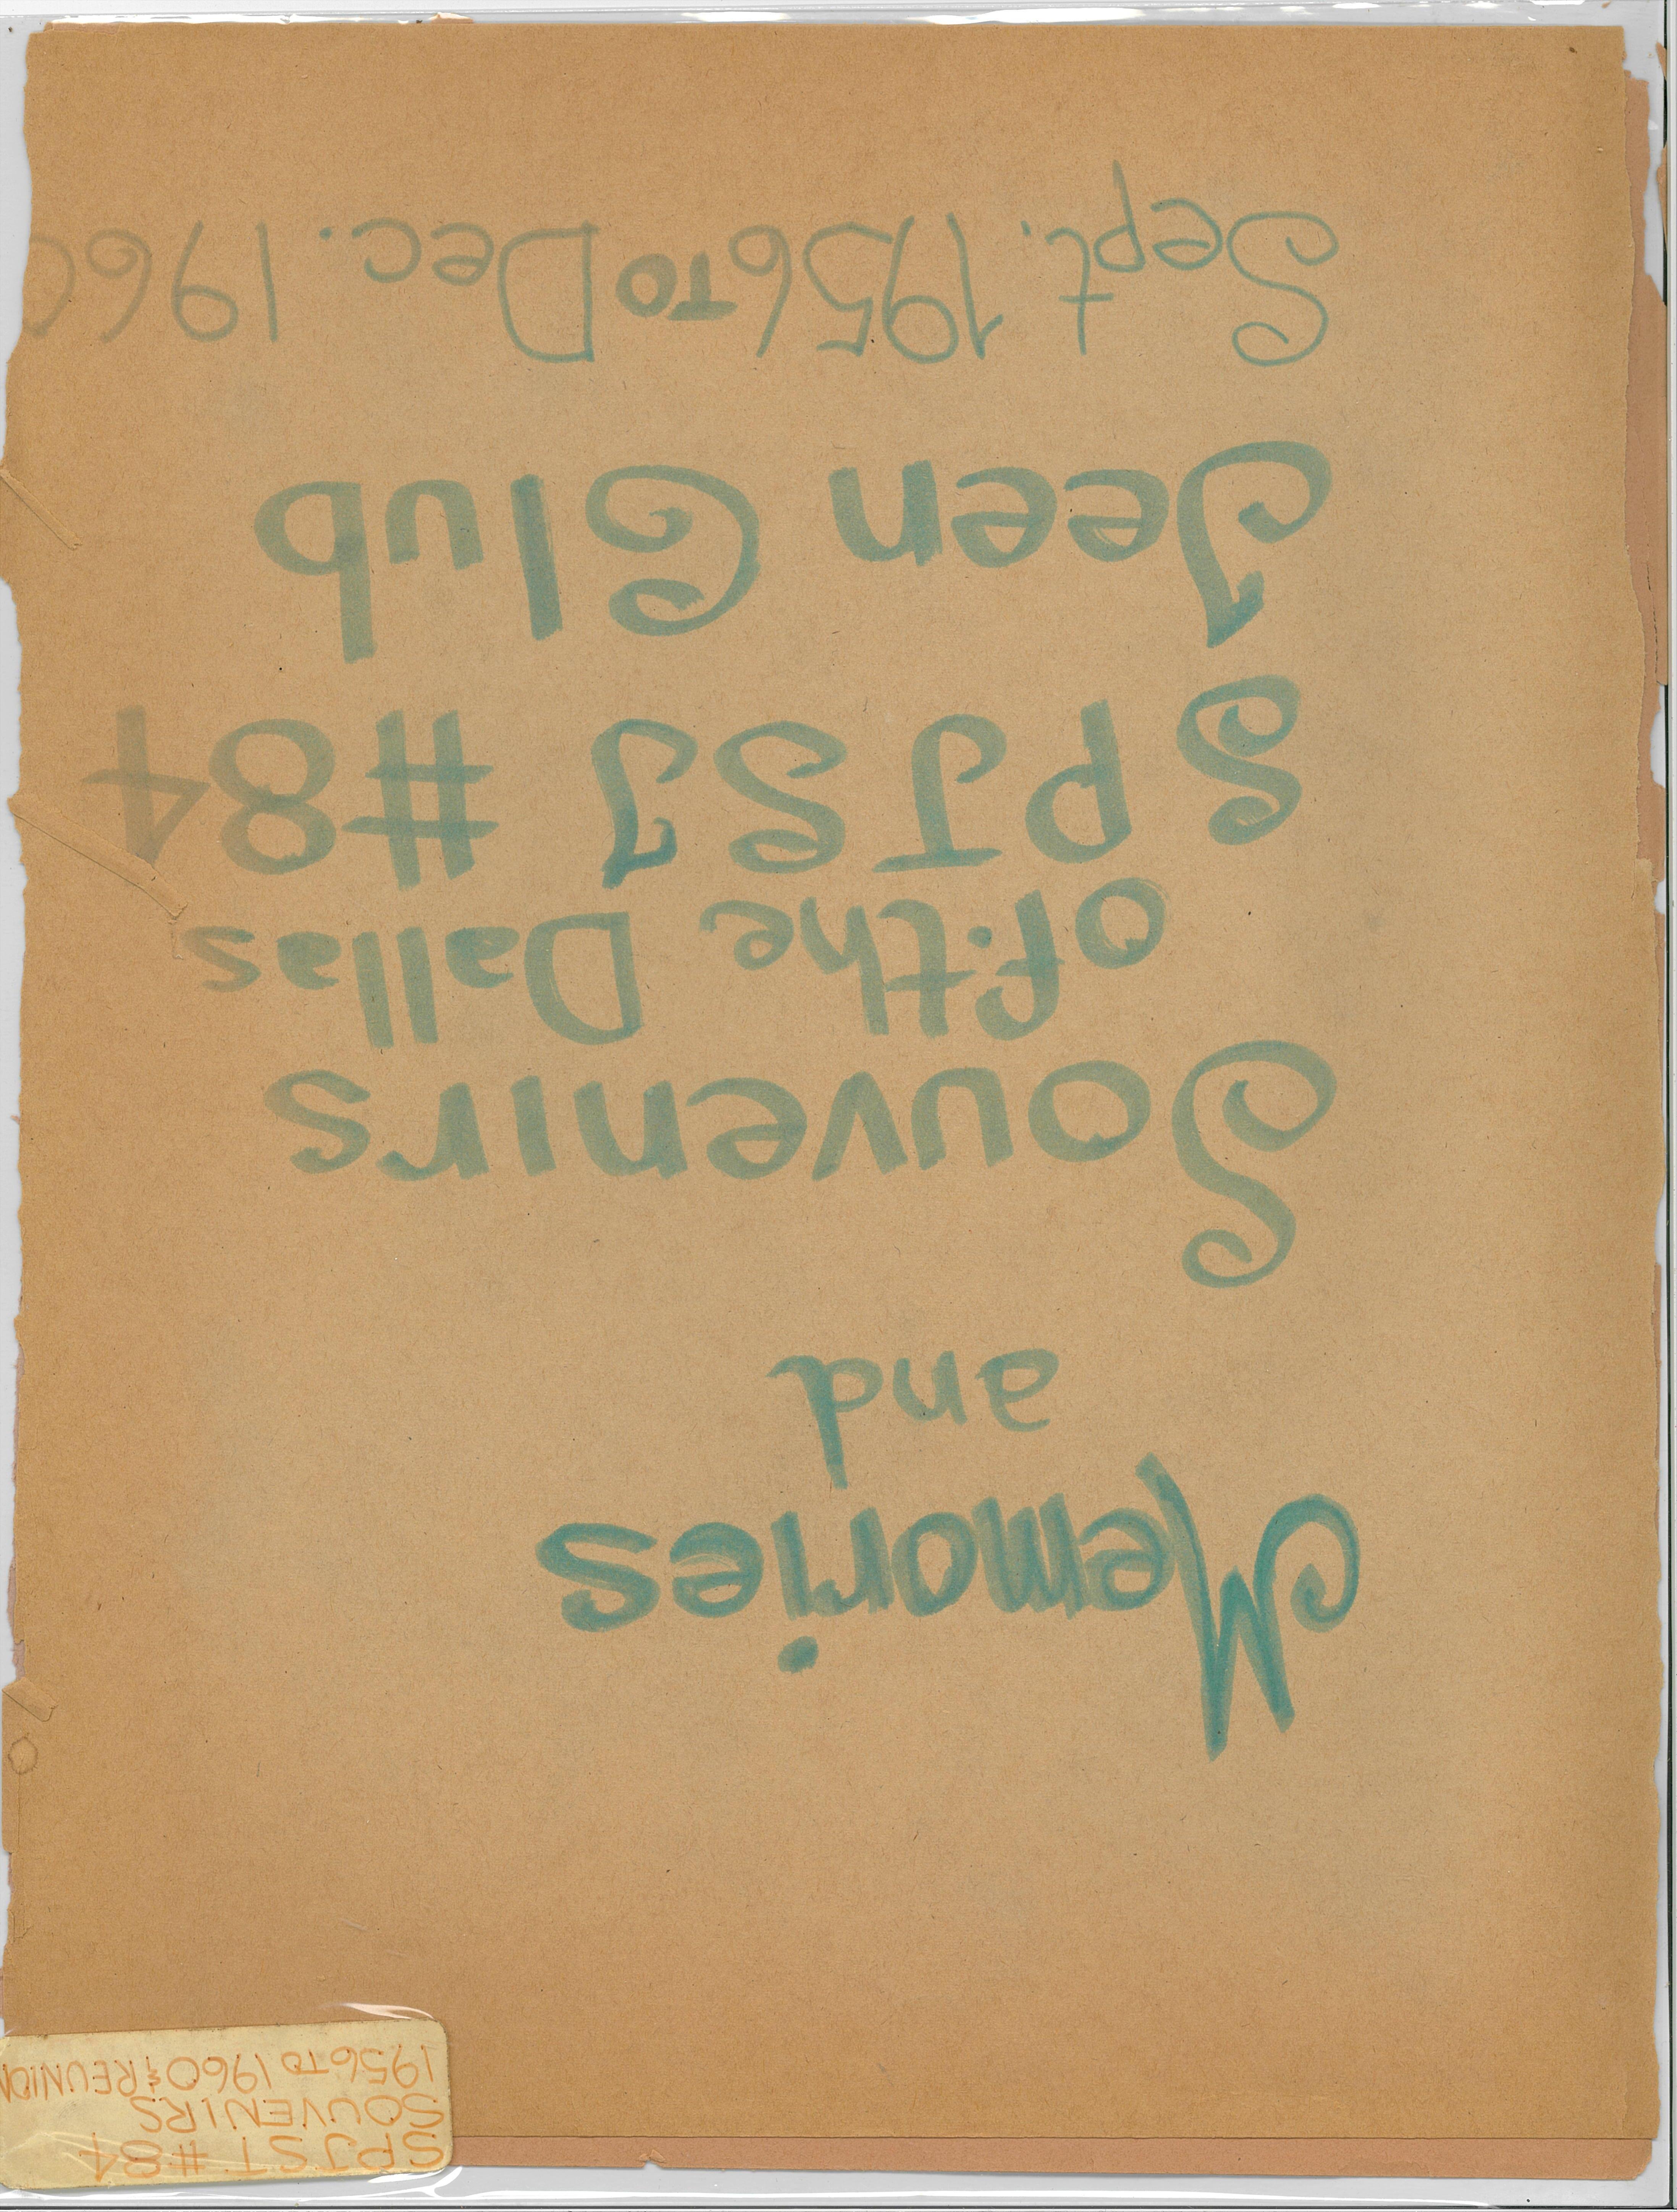 SPJST #84
SOUVENIRS
1956 TO 1960 & REUNION
Memories
and
Souvenirs
of the Dallas
SPJST #84
Teen Club
Sept. 1956 TO Dec. 1960